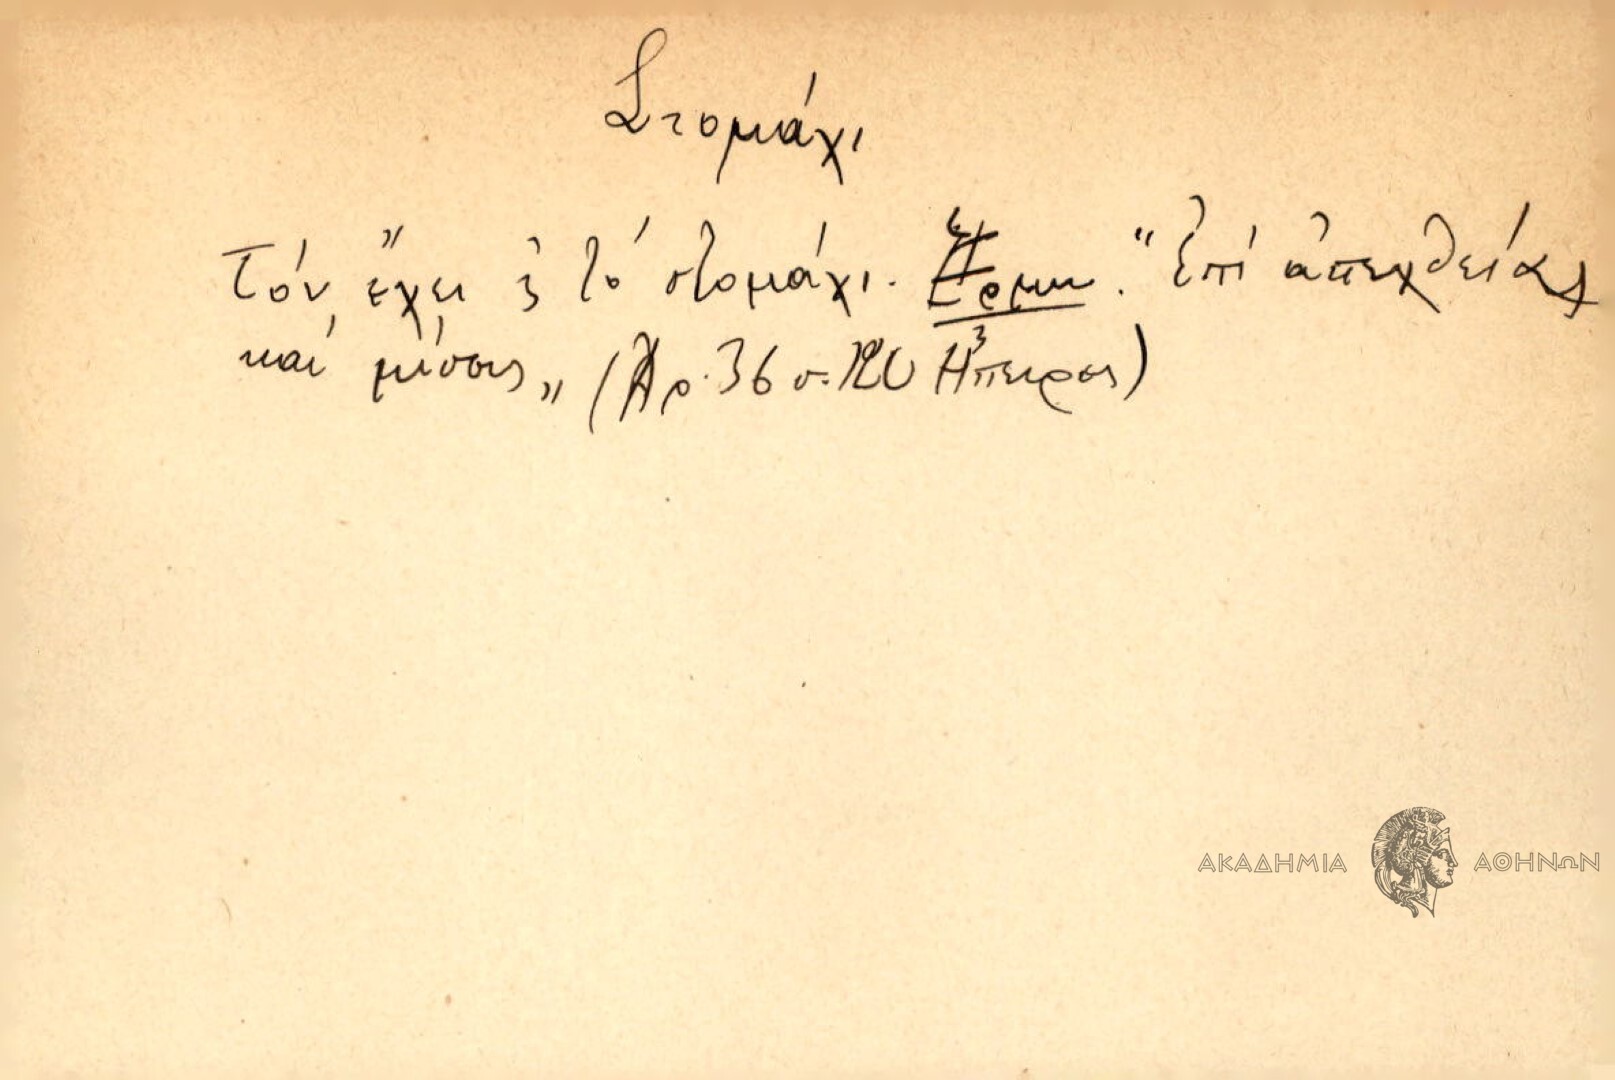 Στομάχι
Τόν ἔχει 's τό στομάχι. Ἑρμ. "Ἐπί ἀπεχθείας
καί μίσους" (Ἀρ. 36 σ. 120 Ἤπειρος)
ΑΚΑΔΗΜΙΑ ΑΘΗΝΩΝ